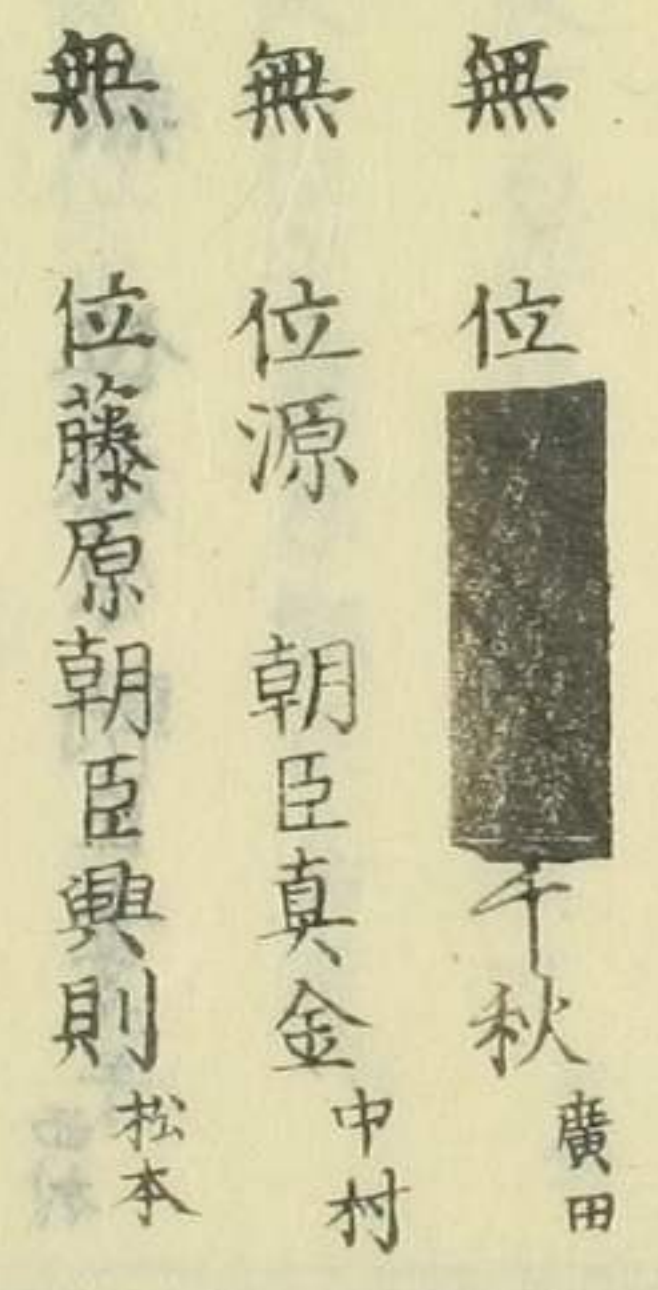 無位千秋 廣田
無位源朝臣真金 中村
無位藤原朝臣興則 松本